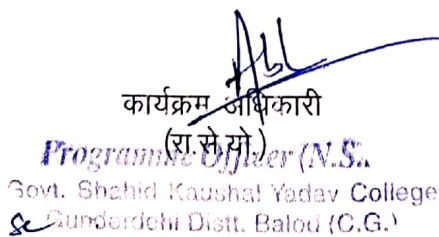 कार्यक्रम अधिकारी
(रा.से.यो.)
Programme Officer (N.S..
Govt. Shahid Kaushal Yadav College
Gunderdehi Distt. Balod (C.G.)